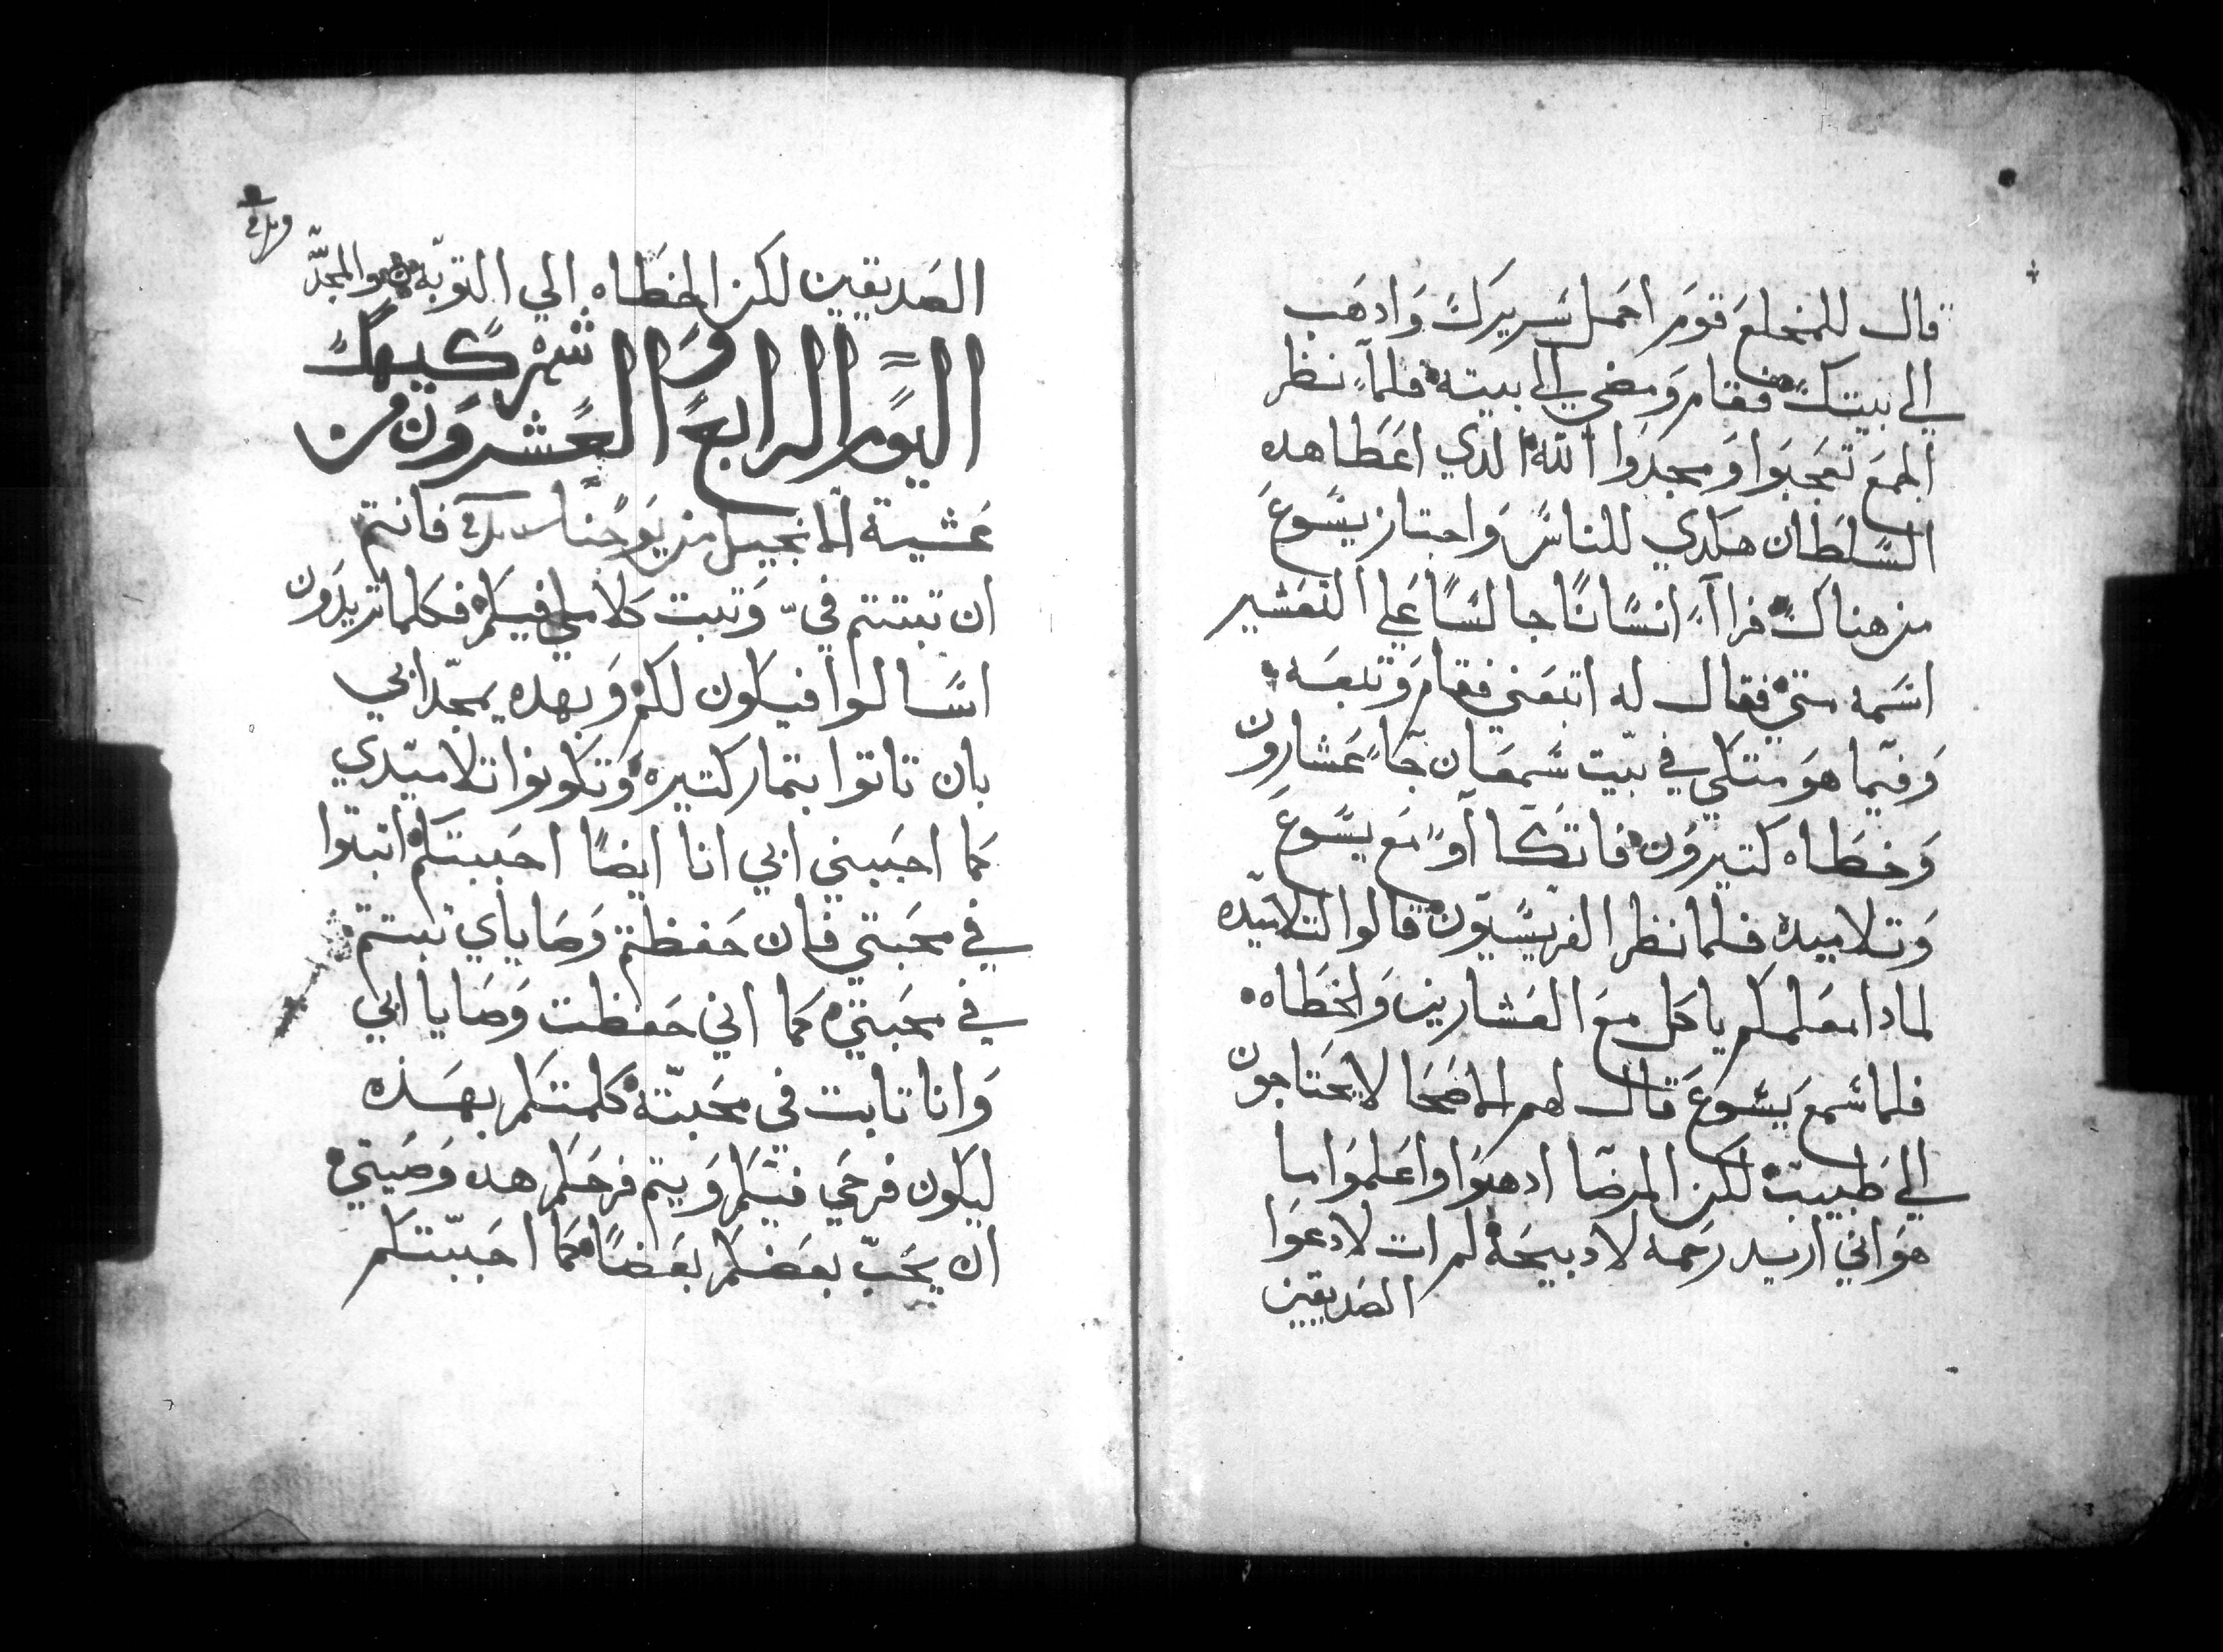 قال للمخلع قوم احمل سريرك وادهب
الي بيتك فقام ومضي الي بيته فلما نظر
الجمع تعجبوا ومجدوا الله الدي اعطا هده
السلطان هكدي للناس واجتاز يسوع
من هناك فراا انسانا جالسا علي التعشير
اسمه متي فقال له اتبعني فقام وتبعه
وفيما هو متكي في بيت سمعان جا عشارون
وخطاه كتيرون فاتكا او مع يسوع
وتلاميده فلما نظر الفريسيون قالوا لتلاميده
لمادا معلمكم ياكل مع العشارين والخطاه
فلما سمع يسوع قال لهم الاصحا لا يحتاجون
الي طبيب لكن المرضا ادهبوا واعلموا ما
هو اني اريد رحمه لا دبيحه لم ات لادعوا
الصديقين
الصديقين لكن الخطاه الي التوبه والمجد
اليوم الرابع والعشرون من شهر كيهك
عشية الانجيل من يوحنا فانتم
ان تبتتم في وتبت كلامي فيكم فكلما تريدون
اسالوا فيكون لكم وبهده يمجد ابي
بان تاتوا بتمار كتيره وتكونوا تلاميدي
كما احببني ابي انا ايضا احببتكم اتبتوا
في محبتي فان حفظتم وصاياي تبتم
في محبتي كما اني حفظت وصايا ابي
وانا تابت في محبته كلمتكم بهذه
ليكون فرحي فيكم ويتم فرحكم هده وصيتي
ان يحب بعضكم بعضا كما احببتكم